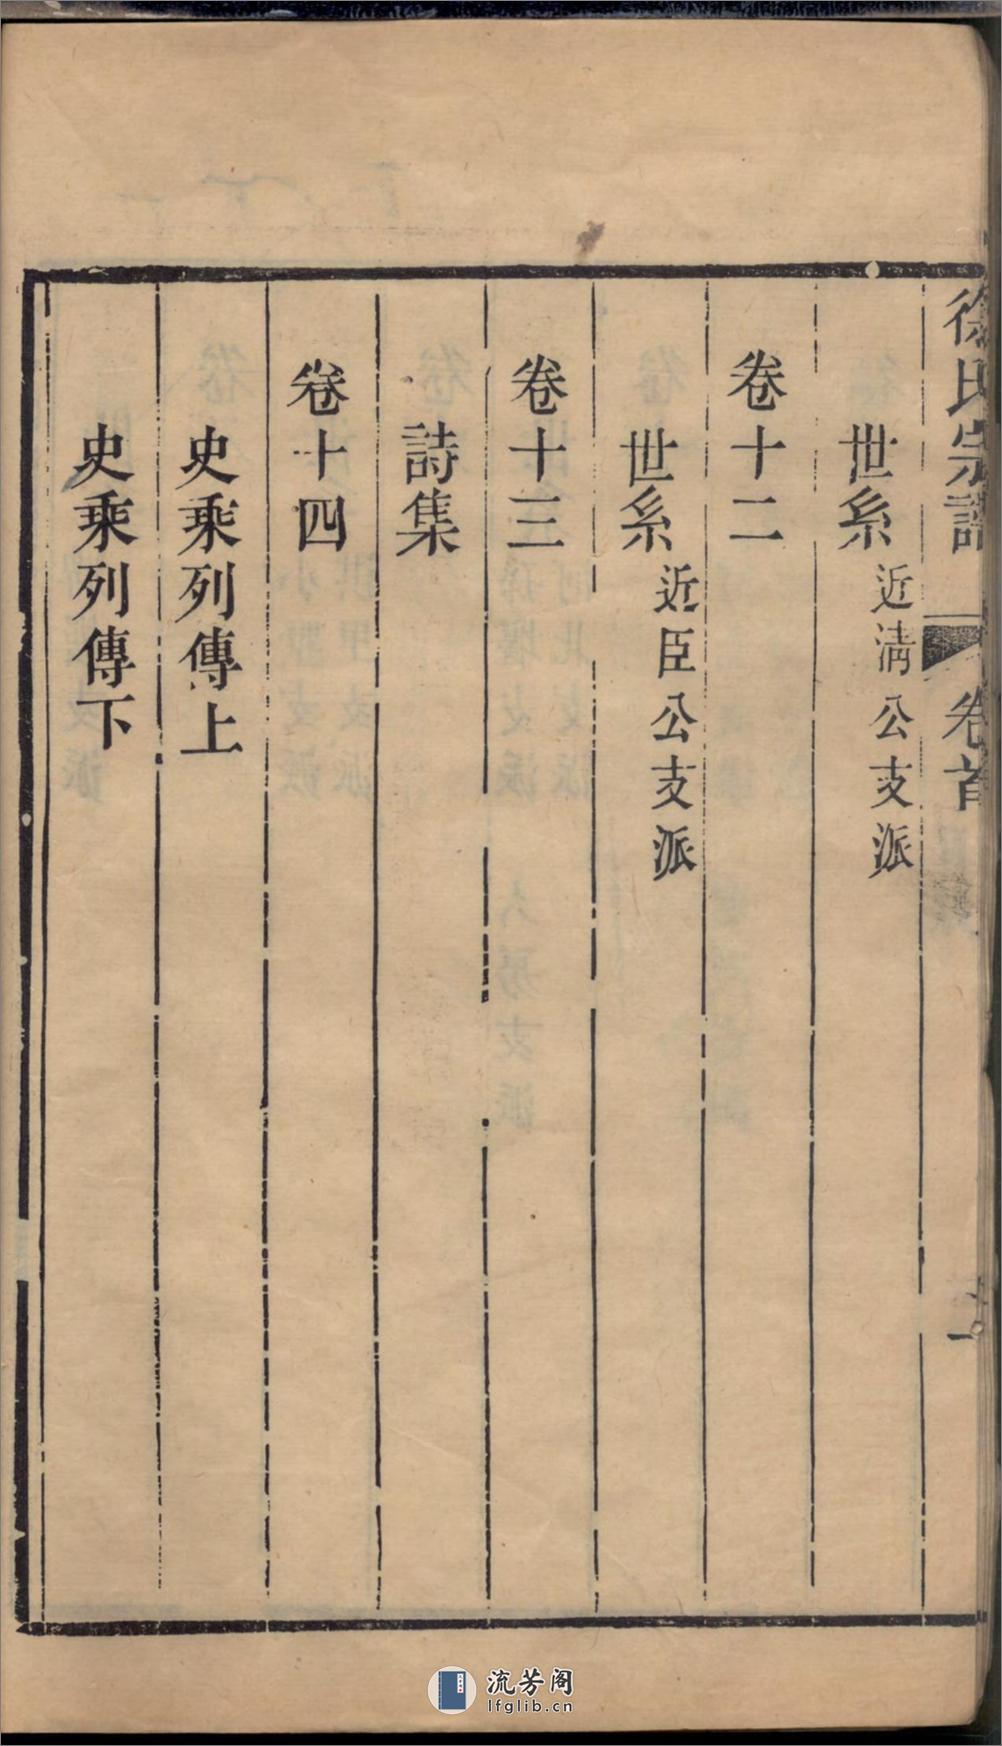 徐氏宗譜 卷首
世系 近淸公支派
卷十二
世系 近臣公支派
卷十三
詩集
卷十四
史乘列傳上
史乘列傳下
流芳阁
lfglib.cn